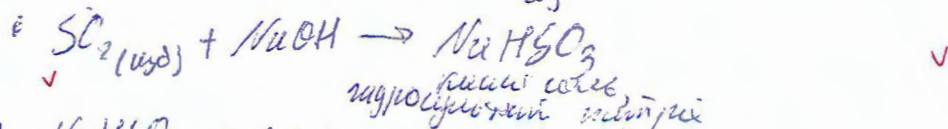 SO₂(изб) + NaOH → NaHSO₃
кислая соль
гидросульфит натрия